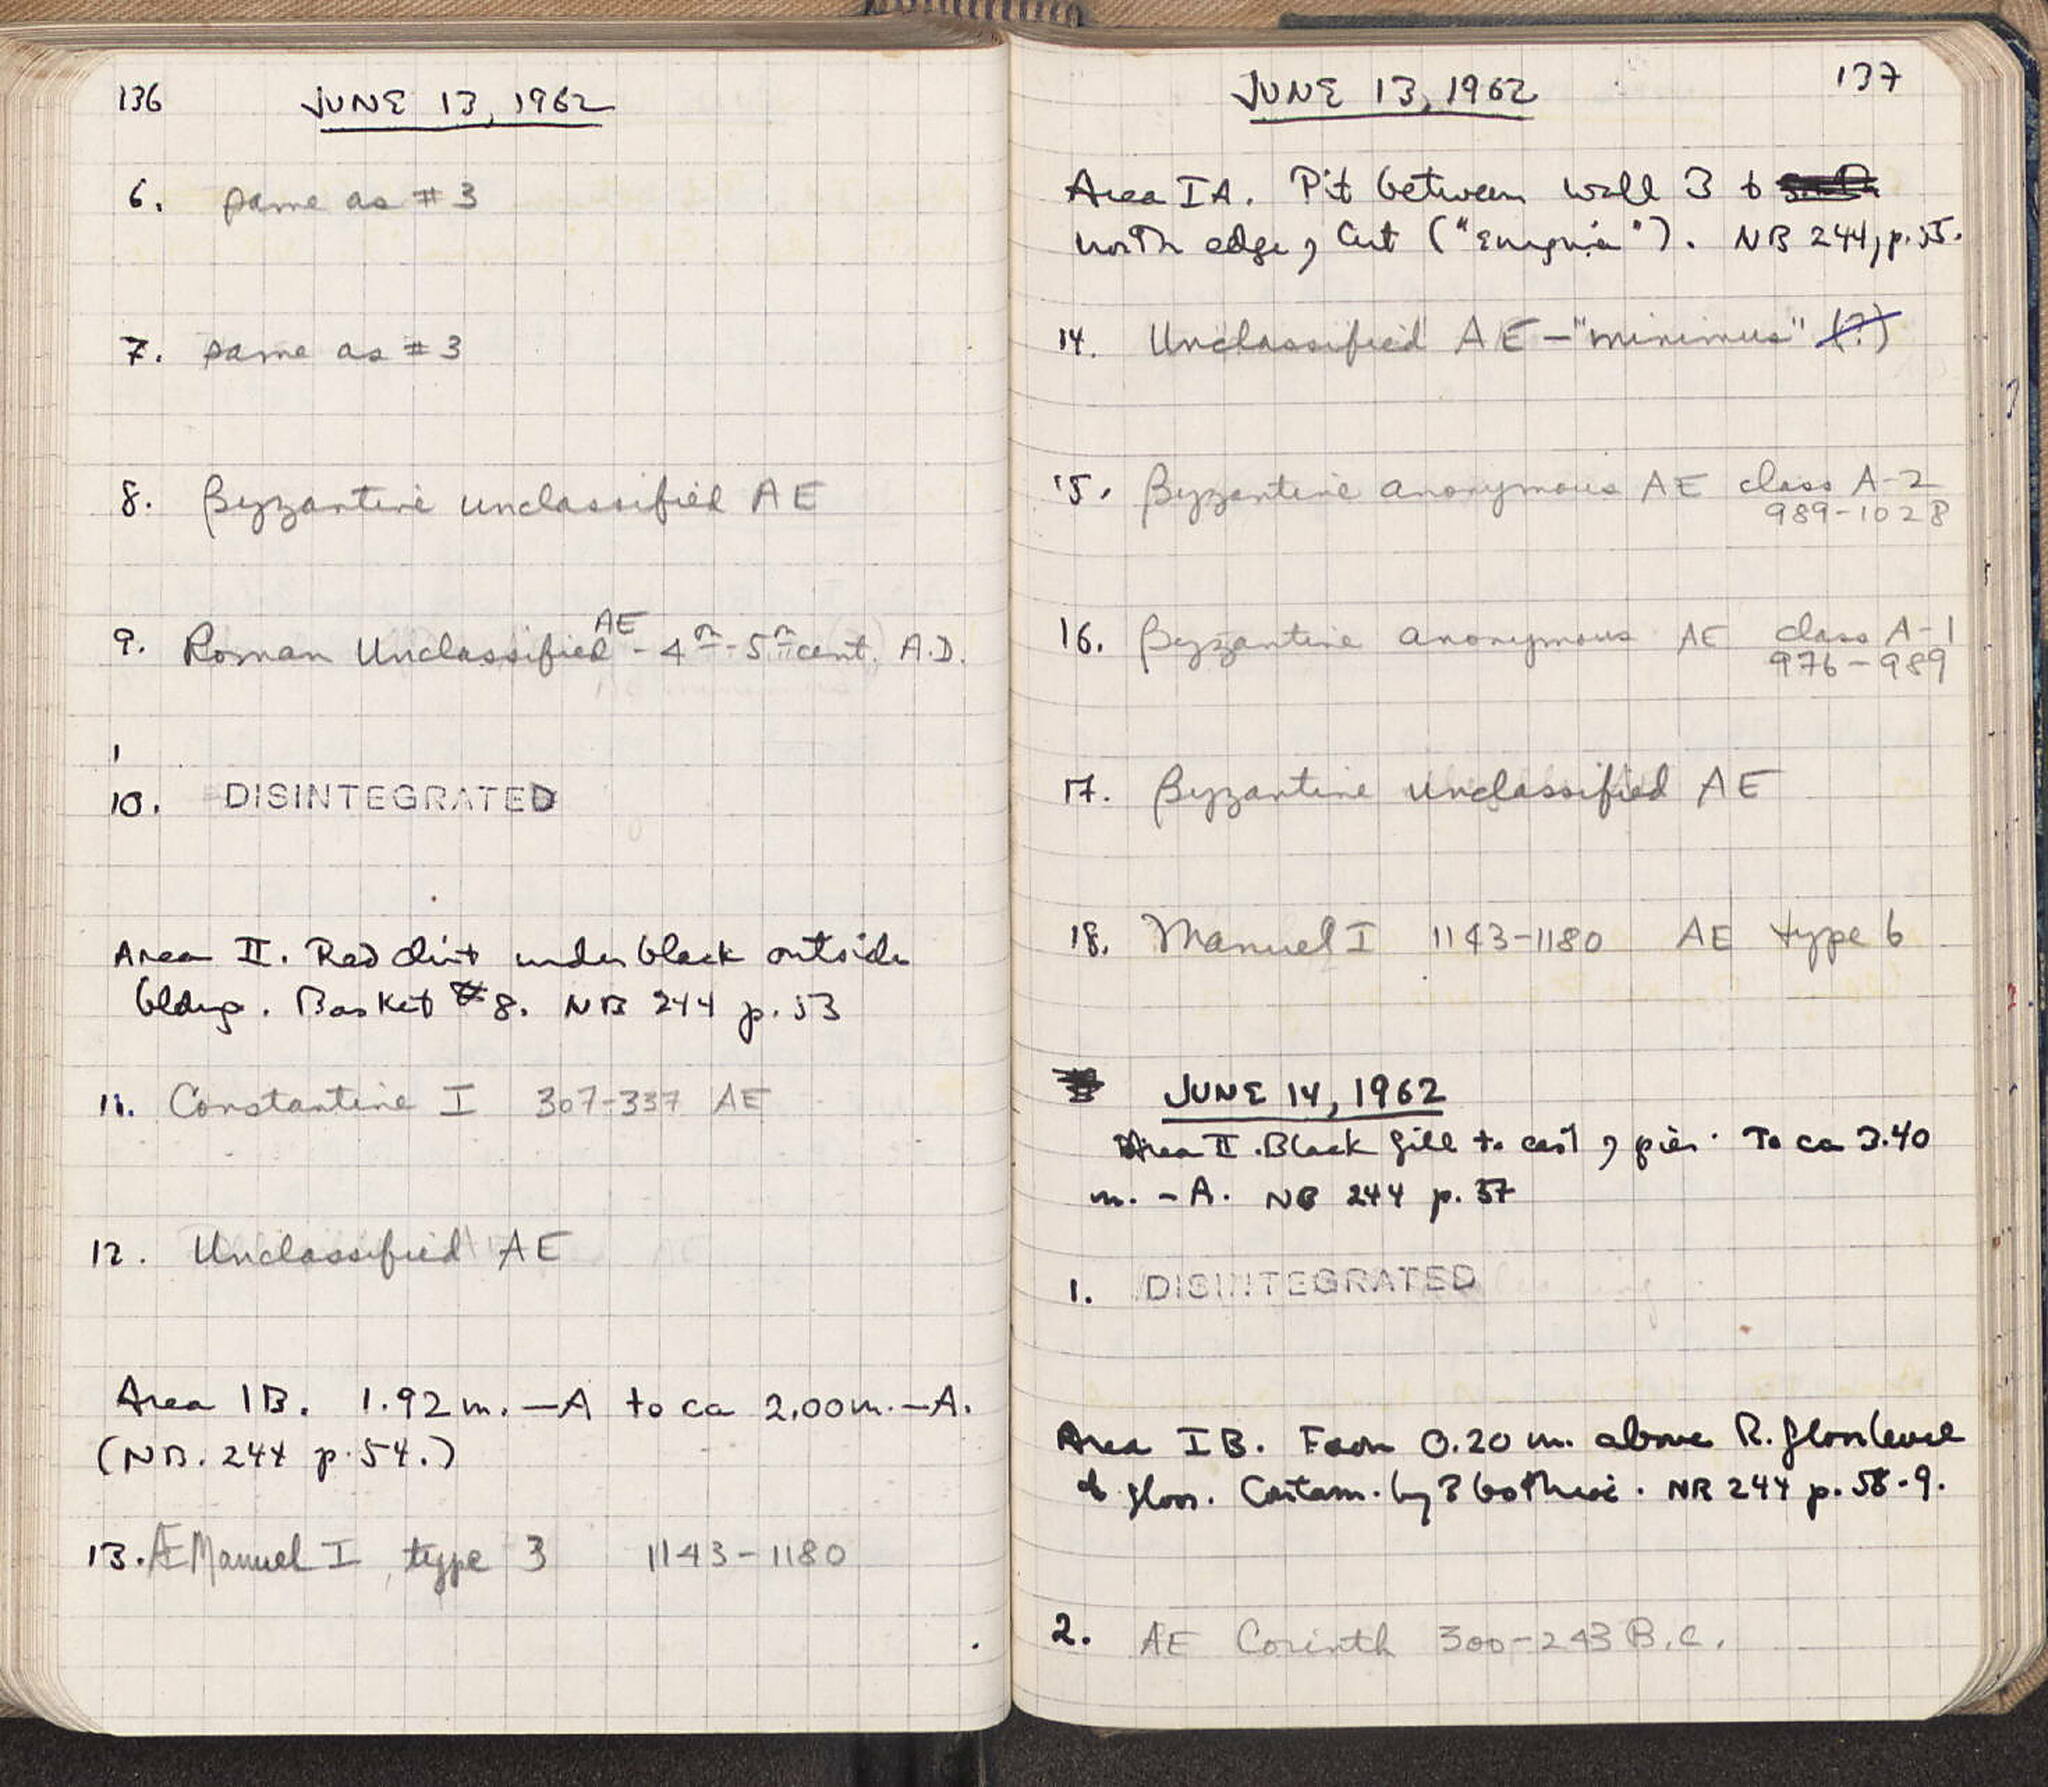 136
JUNE 13, 1962
6. same as #3
7. same as #3
8. Byzantine unclassified AE
9. Roman Unclassified AE - 4th - 5th cent. A.D.
1
10. DISINTEGRATED
Area II. Red dirt under black outside
bldng. Basket #8. NB 244 p. 53
11. Constantine I 307-337 AE
12. Unclassified AE
Area IB. 1.92 m. -A to ca 2.00 m. -A.
(NB. 244 p. 54.)
13. AE Manuel I, type 3 1143-1180
137
JUNE 13, 1962
Area IA. Pit between wall 3 &
north edge, Cut ("Enigma"). NB 244, p. 55.
14. Unclassified AE - "minimus" (?)
15. Byzantine anonymous AE class A-2
989-1028
16. Byzantine anonymous AE class A-1
976-989
17. Byzantine unclassified AE
18. Manuel I 1143-1180 AE type 6
JUNE 14, 1962
Area II. Black fill to east of pier. To ca 3.40
m. -A. NB 244 p. 57
1. DISINTEGRATED
Area IB. From 0.20 m. above R. floor level
to floor. Contam. by bothroi. NB 244 p. 58-9.
2. AE Corinth 300-243 B.C.